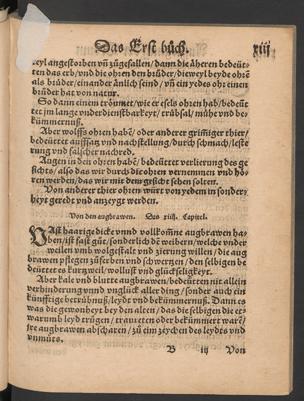 Das Erst büch. xiij
teyl angestorben vñ zůgefallen/dann die äheren bedeüt-
ten das erb/vnd die ohren den brůder/dieweyl beyde ohrẽ
als brůder/einander ånlich seind/vñ ein yedes ohr einen
brůder hat von natur.
So dann einem trŏumet/wie er esels ohren hab/bedeü-
tet jm lange vnderdienstbarkeyt/trübsal/mühe vnd be-
kümmernuß.
Aber wolffs ohren habẽ/oder anderer grim̃iger thier/
bedeüttet auffsatz vnd nachstellung/durch schmach/leste
rung vnd falscher nachred.
Augen in den ohren habẽ/bedeüttet verlierung des ge
sichts/also das wir durch die ohren vernemmen vnd hö-
ren werden/das wir mit dem gesicht sehen solten.
Von anderer thier ohren würt von yedem in sonder-
heyt geredt vnd anzeygt werden.
Von den augbrawen. Das xiiij. Capitel.
VAst haarige dicke vnnd vollkom̃ne augbrawen ha-
ben/ist fast gůt/sonderlich dẽ weibern/welche vnder
weilen vmb wolgestalt vnd zierung willen/die aug
brawen pflegen zůferben vnd schwertzen/den selbigen be
deüttet es kurtzweil/wollust vnd glückseligkeyt.
Aber kale vnd blutte augbrawen/bedeütten nit allein
verhinderung vnnd vnglück aller ding/sonder auch ein
künfftige betrübnuß/leyd vnd bekümmernuß. Dann es
was die gewonheyt bey den alten/das die selbigen die et-
warumb leyd trůgen/traureten oder bekümmert warẽ/
jre augbrawen abscharen/zů eim zeychen des leydts vnd
vnmůts.
B iij Von